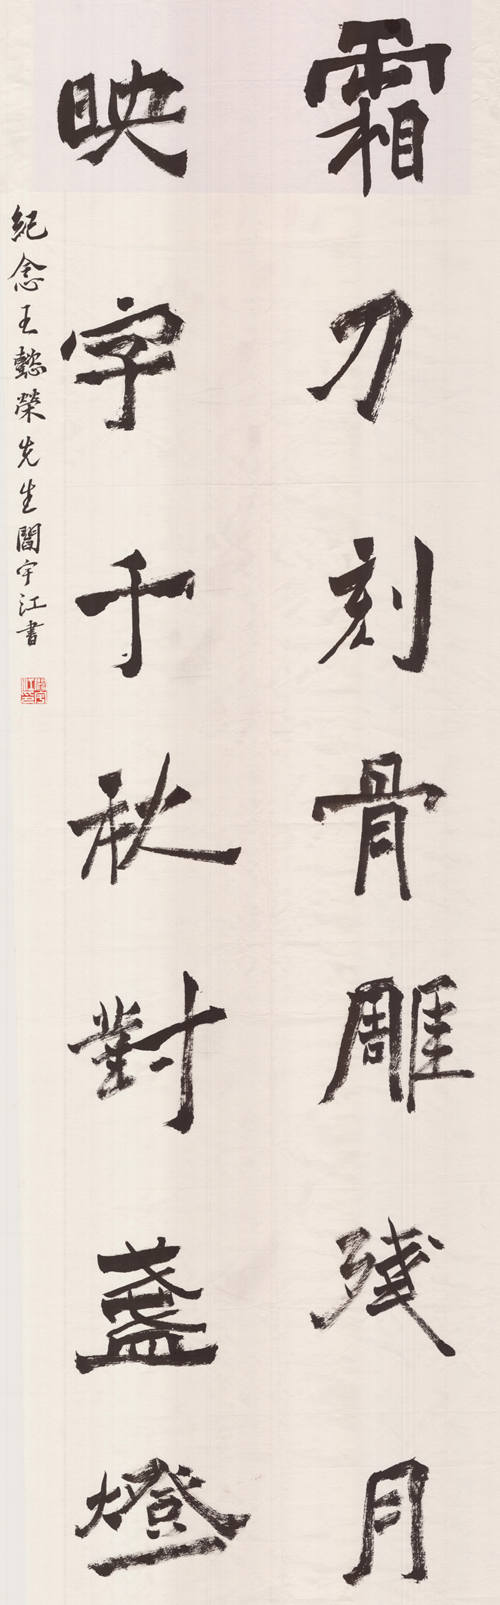 霜刀刻骨雕残月
映字千秋對盏燈
紀念王懿榮先生閻宇江書